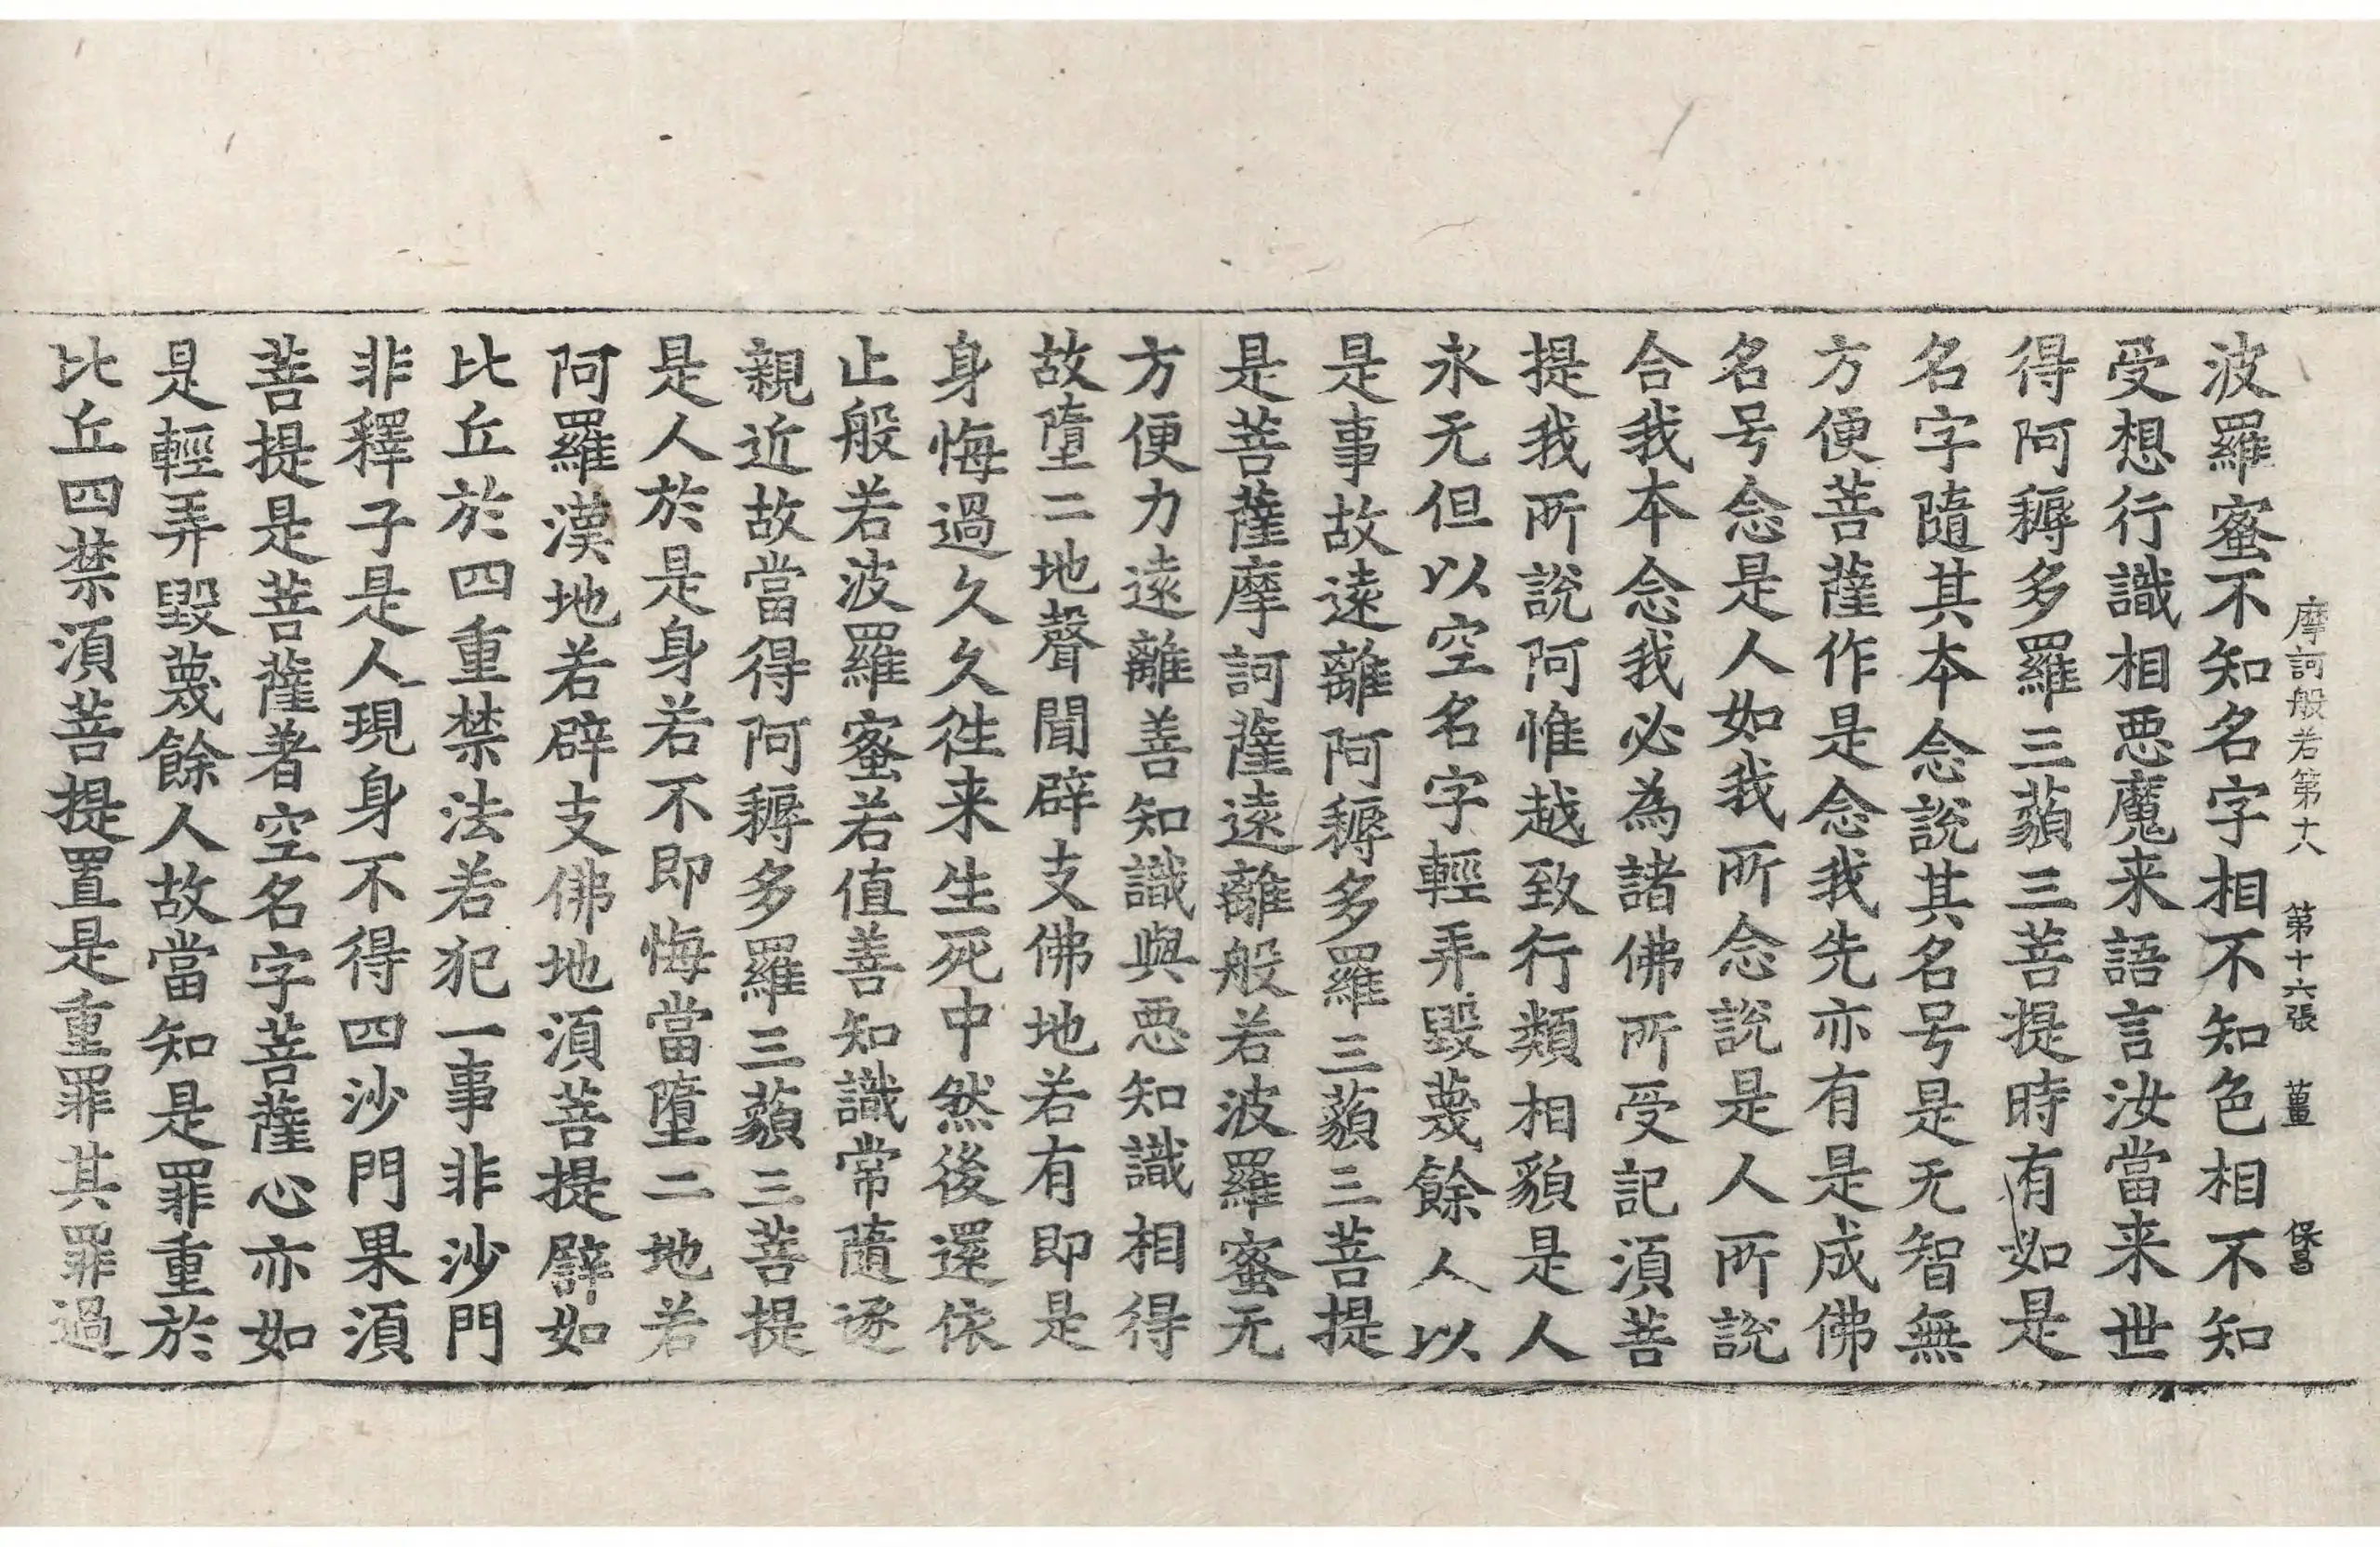 摩訶般若第十八　第十六張　薑　保昌
波羅蜜不知名字相不知色相不知
受想行識相惡魔来語言汝當来世
得阿耨多羅三藐三菩提時有如是
名字隨其本念說其名号是无智無
方便菩薩作是念我先亦有是成佛
名号念是人如我所念說是人所說
合我本念我必為諸佛所受記湏菩
提我所說阿惟越致行類相貌是人
永无但以空名字輕弄毀蔑餘人以
是事故遠離阿耨多羅三藐三菩提
是菩薩摩訶薩遠離般若波羅蜜无
方便力遠離善知識與惡知識相得
故墮二地聲聞辟支佛地若有即是
身悔過久久往来生死中然後還依
止般若波羅蜜若值善知識常隨逐
親近故當得阿耨多羅三藐三菩提
是人於是身若不即悔當墮二地若
阿羅漢地若辟支佛地湏菩提譬如
比丘於四重禁法若犯一事非沙門
非釋子是人現身不得四沙門果湏
菩提是菩薩著空名字菩薩心亦如
是輕弄毀蔑餘人故當知是罪重於
比丘四禁湏菩提置是重罪其罪過